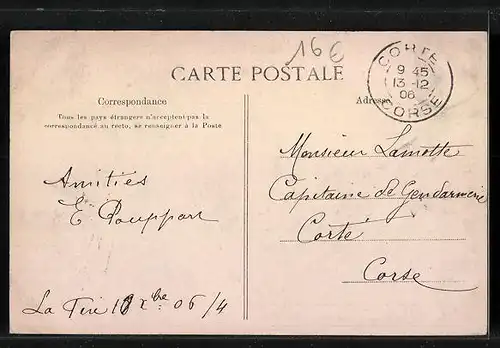 16€
CORTE
9 45
13-12
06
CORSE
CARTE POSTALE
Correspondance
Tous les pays étrangers n'acceptent pas la
correspondance au recto, se renseigner à la Poste
Adresse
Amitiés
E. Pouppart
Monsieur Lamotte
Capitaine de Gendarmerie
Corté
Corse
La 06/4